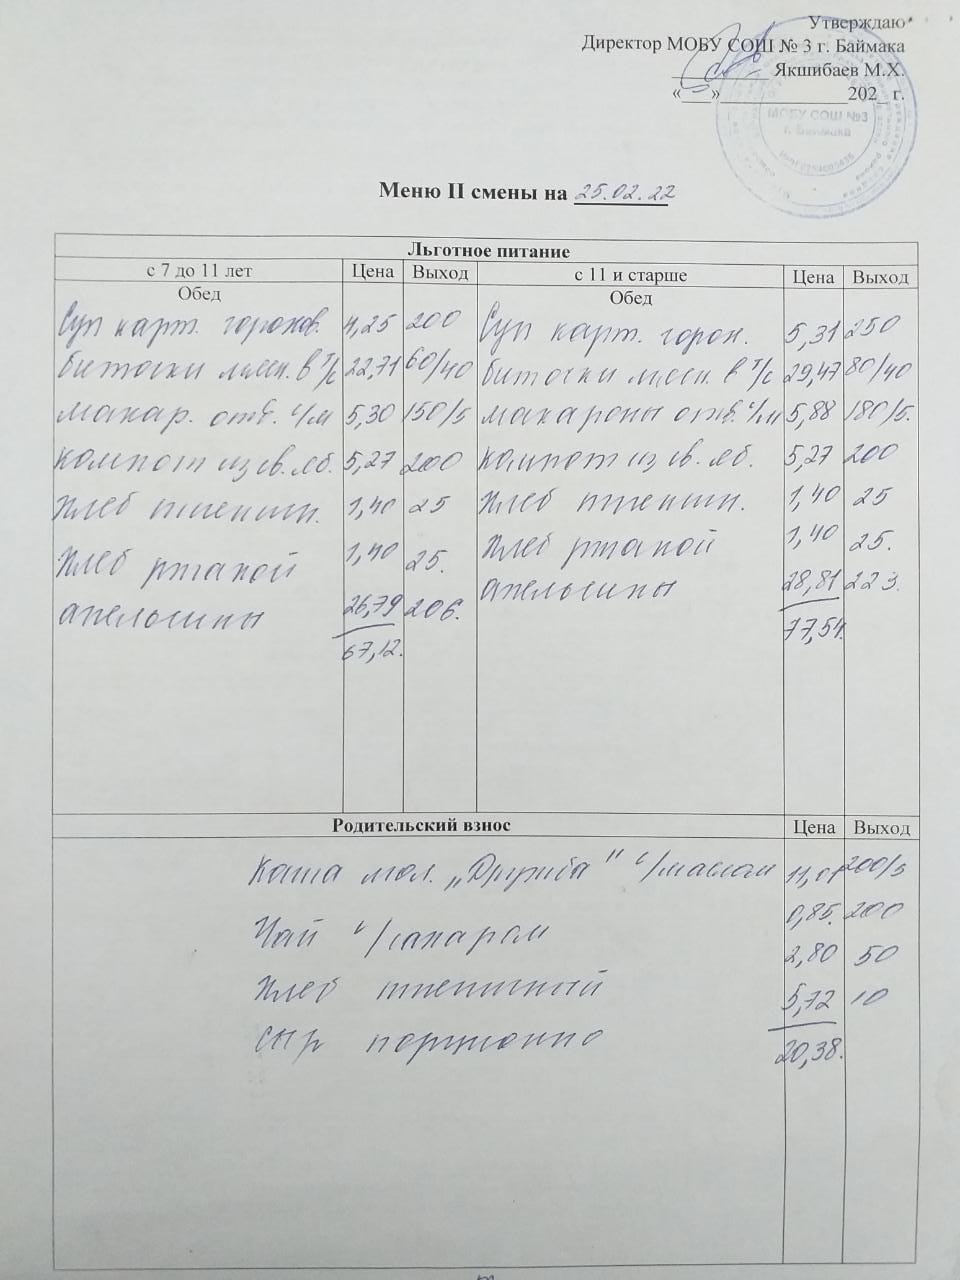 Утверждаю
Директор МОБУ СОШ № 3 г. Баймака
Якшибаев М.Х.
«___»______________202_ г.
МОБУ СОШ №3
г. Баймака
Меню II смены на 25.02.22
Льготное питание
с 7 до 11 лет Цена Выход с 11 и старше Цена Выход
Обед Обед
Суп карт. горохов. 4,25 200 Суп карт. горох. 5,31 250
биточки мясн. в т/с 22,71 60/40 биточки мясн. в т/с 29,47 80/40
макар. отв. с/м 5,30 150/5 макароны отв. с/м 5,88 180/5.
компот из св. яб. 5,27 200 компот из св. яб. 5,27 200
Хлеб пшеничн. 1,40 25 Хлеб пшеничн. 1,40 25
Хлеб ржаной 1,40 25. Хлеб ржаной 1,40 25.
апельсины 26,79 206. апельсины 28,81 223.
67,12. 77,54.
Родительский взнос Цена Выход
Каша мол. „Дружба" с/маслом 11,01 200/5
Чай с/сахаром 0,85. 200
Хлеб пшеничный 2,80 50
сыр порционно 5,72 10
20,38.